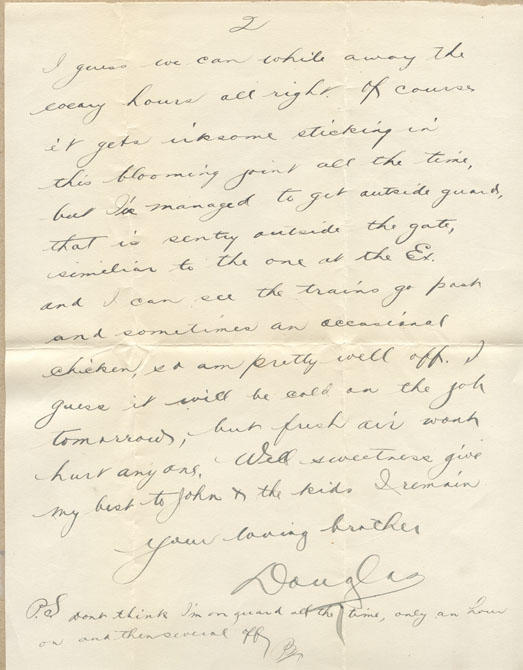 2
I guess we can while away the
weary hours all right. Of course
it gets irksome sticking in
this blooming joint all the time,
but I've managed to get outside guard,
that is sentry outside the gate,
similiar to the one at the Ex.
and I can see the trains go past
and sometimes an occasional
chicken, so am pretty well off. I
guess it will be cold on the job
tomorrow, but fresh air wont
hurt anyone. Well sweetness give
my best to John & the kids I remain
your loving brother
Douglas
P.S dont think I'm on guard all the time, only an hour
on and then several off